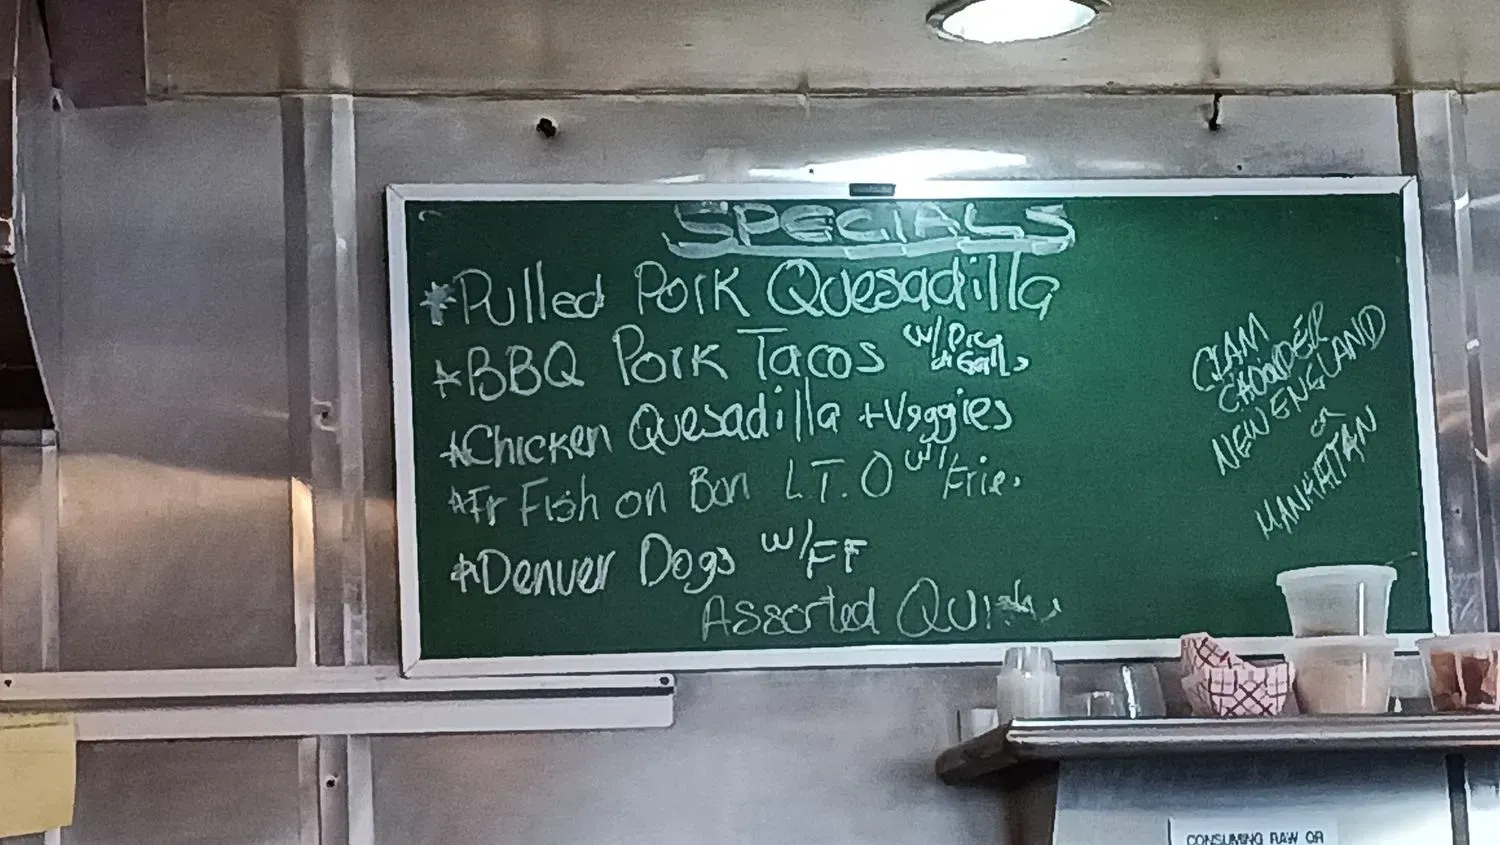 SPECIALS
*Pulled Pork Quesadilla
*BBQ Pork Tacos w/Pico
de Gallo
*Chicken Quesadilla +Veggies
*Fr Fish on Bun L.T.O w/Frie.
*Denver Dogs w/FF
Assorted
CLAM
CHOWDER
NEW ENGLAND
or
MANHATTAN
CONSUMING RAW OR